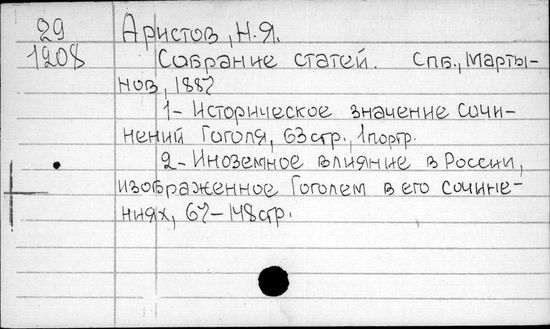 29
1208
Аристов, Н.Я.
Собрание статей. Спб., Марты-
нов, 1887
1- Историческое значение сочи-
нений Гоголя, 63 стр., 1 портр.
2- Иноземное влияние в России,
изображенное Гоголем в его сочине-
ниях, 67-148 стр.